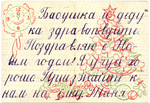 Бабушка и деду
ка здравствуйте.
Поздравляю с Но
вым годом! Я учусь хо
рошо. Приезжайте к
нам на ёлку. Таня